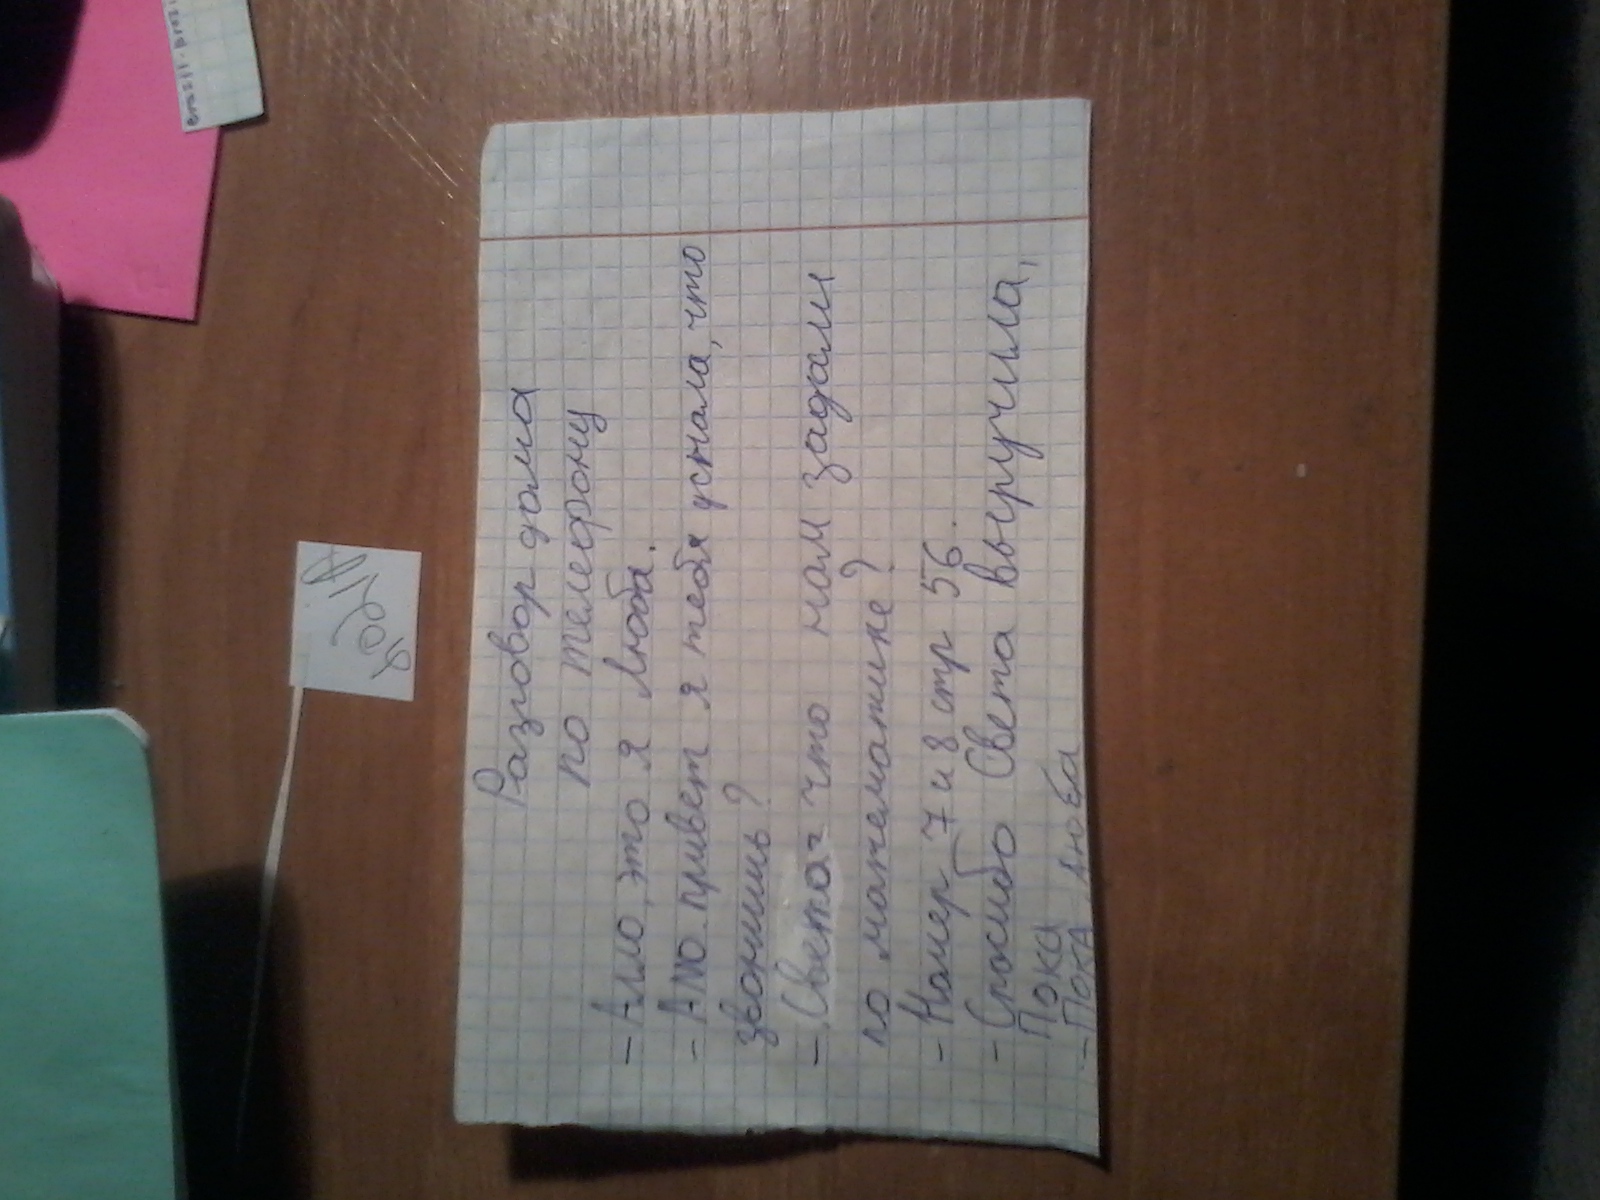 Разговор дома
по телефону
- Алло, это я Люба.
- Ало. привет я тебя уснала, что
звонишь?
- Света что нам задали
по математике?
- Номер 7 и 8 стр 56.
- Спасибо Света выручила,
Пока
- Пока, Люба